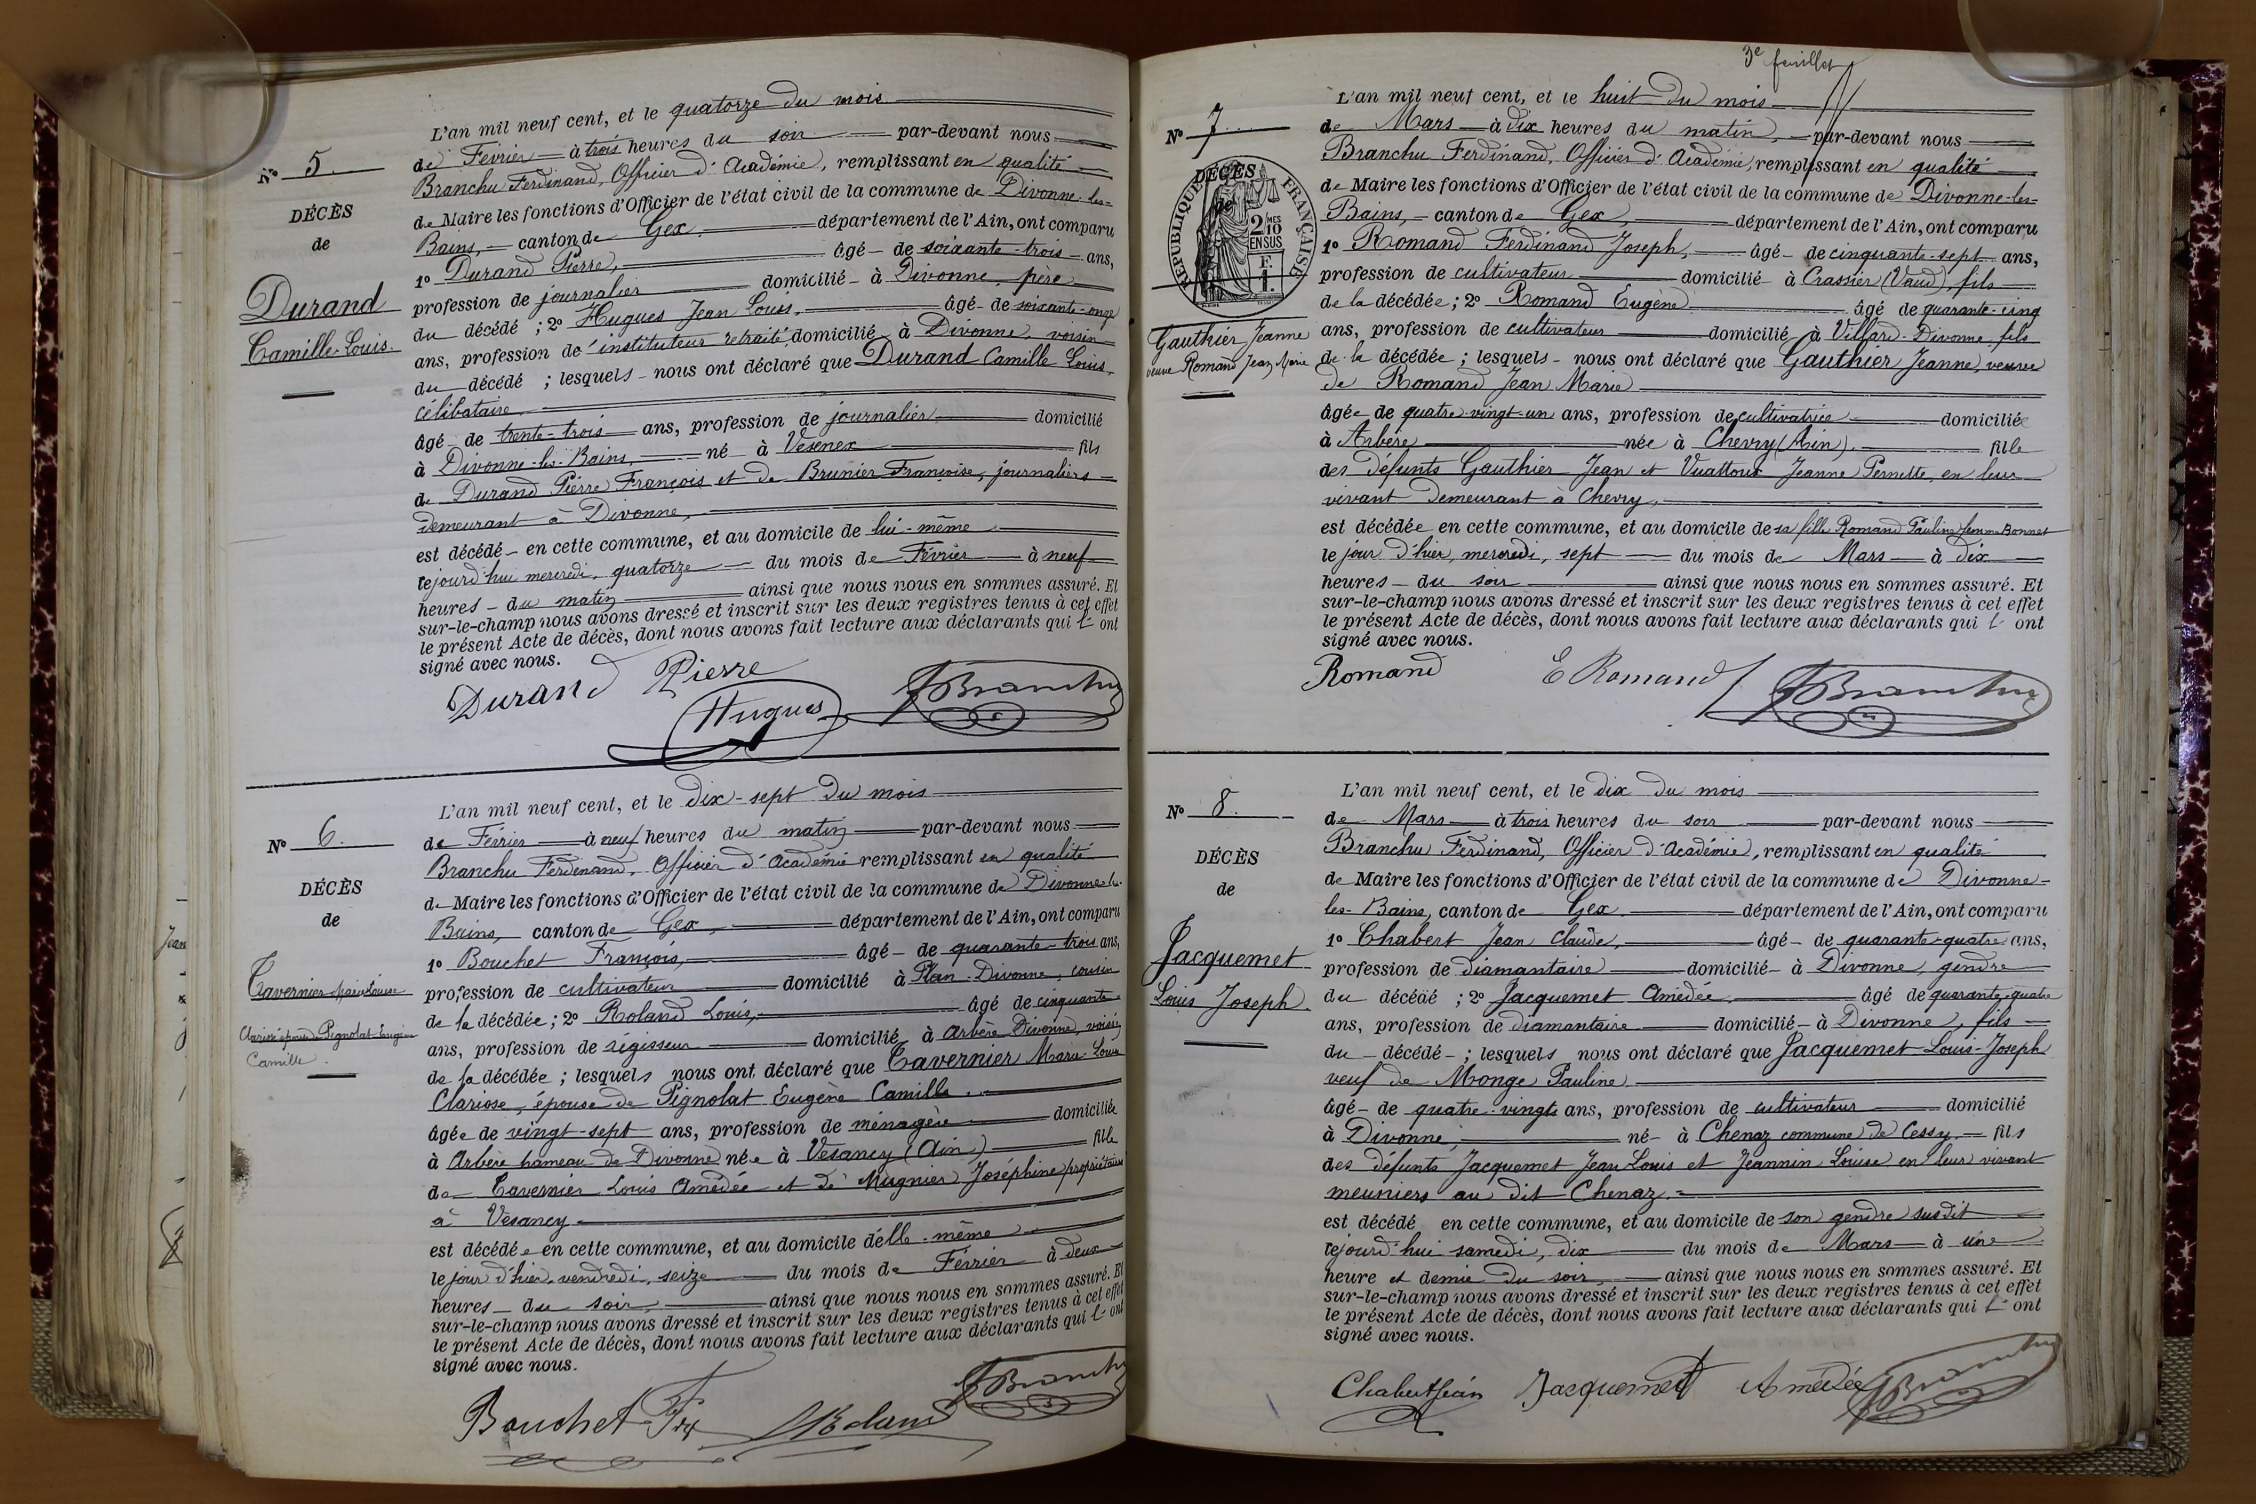 L'an mil neuf cent, et le quatorze du mois
de Février à trois heures du soir par-devant nous
Branchu Ferdinand, Officier d'Académie, remplissant en qualité
de Maire les fonctions d'Officier de l'état civil de la commune de Divonne-les-
Bains, canton de Gex, département de l'Ain, ont comparu
1º Durand Pierre, âgé de soixante-trois ans,
profession de journalier domicilié à Divonne, père
du décédé ; 2º Hugues Jean Louis, âgé de soixante-onze
ans, profession de instituteur retraité domicilié à Divonne, voisin
du décédé ; lesquels nous ont déclaré que Durand Camille Louis,
célibataire
âgé de trente-trois ans, profession de journalier domicilié
à Divonne-les-Bains, né à Vesenex fils
de Durand Pierre François et de Brunier Françoise, journaliers
demeurant à Divonne,
est décédé en cette commune, et au domicile de lui-même
cejourd'hui mercredi, quatorze du mois de Février à neuf
heures du matin ainsi que nous nous en sommes assuré. Et
sur-le-champ nous avons dressé et inscrit sur les deux registres tenus à cet effet
le présent Acte de décès, dont nous avons fait lecture aux déclarants qui l'ont
signé avec nous.
Durand Pierre
Hugues
Branchu
Nº 5.
DÉCÈS
de
Durand
Camille Louis.
L'an mil neuf cent, et le dix-sept du mois
de Février à neuf heures du matin par-devant nous
Branchu Ferdinand, Officier d'Académie remplissant en qualité
de Maire les fonctions d'Officier de l'état civil de la commune de Divonne-les-
Bains, canton de Gex, département de l'Ain, ont comparu
1º Bouchet François, âgé de quarante-trois ans,
profession de cultivateur domicilié à Plan-Divonne, cousin
de la décédée ; 2º Roland Louis, âgé de cinquante
ans, profession de régisseur domicilié à Arbère Divonne, voisin
de la décédée ; lesquels nous ont déclaré que Tavernier Marie Louise
Clarisse, épouse de Pignolat Eugène Camille
âgée de vingt-sept ans, profession de ménagère domiciliée
à Arbère hameau de Divonne née à Vesancy (Ain) fille
de Tavernier Louis Amédée et de Mugnier Joséphine propriétaires
à Vesancy
est décédée en cette commune, et au domicile d'elle-même
le jour d'hier, vendredi, seize du mois de Février à deux
heures du soir, ainsi que nous nous en sommes assuré. Et
sur-le-champ nous avons dressé et inscrit sur les deux registres tenus à cet effet
le présent Acte de décès, dont nous avons fait lecture aux déclarants qui l'ont
signé avec nous.
Bouchet Roland Branchu
Nº 6.
DÉCÈS
de
Tavernier Marie Louise
Clarisse épouse de Pignolat Eugène
Camille.
3e feuillet
L'an mil neuf cent, et le huit du mois
de Mars à dix heures du matin, par-devant nous
Branchu Ferdinand, Officier d'Académie, remplissant en qualité
de Maire les fonctions d'Officier de l'état civil de la commune de Divonne-les-
Bains, canton de Gex, département de l'Ain, ont comparu
1º Romand Ferdinand Joseph, âgé de cinquante-sept ans,
profession de cultivateur domicilié à Crassier (Vaud), fils
de la décédée ; 2º Romand Eugène âgé de quarante-cinq
ans, profession de cultivateur domicilié à Villard-Divonne, fils
de la décédée ; lesquels nous ont déclaré que Gauthier Jeanne, veuve
de Romand Jean Marie
âgée de quatre-vingt-un ans, profession de cultivatrice domiciliée
à Arbère née à Chevry (Ain). fille
des défunts Gauthier Jean et Vuattoux Jeanne Pernette, en leur
vivant demeurant à Chevry,
est décédée en cette commune, et au domicile de sa fille Romand Pauline femme Bonnet
le jour d'hier, mercredi, sept du mois de Mars à dix
heures du soir ainsi que nous nous en sommes assuré. Et
sur-le-champ nous avons dressé et inscrit sur les deux registres tenus à cet effet
le présent Acte de décès, dont nous avons fait lecture aux déclarants qui l'ont
signé avec nous.
Romand E Romand Branchu
Nº 7
DÉCÈS
de
RÉPUBLIQUE FRANÇAISE
2 MES
10
EN SUS
F.
1.
Gauthier Jeanne
veuve Romand Jean Marie
L'an mil neuf cent, et le dix du mois
de Mars à trois heures du soir par-devant nous
Branchu Ferdinand, Officier d'Académie, remplissant en qualité
de Maire les fonctions d'Officier de l'état civil de la commune de Divonne-
les-Bains, canton de Gex, département de l'Ain, ont comparu
1º Chabert Jean Claude, âgé de quarante-quatre ans,
profession de diamantaire domicilié à Divonne, gendre
du décédé ; 2º Jacquemet Amédée, âgé de quarante-quatre
ans, profession de diamantaire domicilié à Divonne, fils
du décédé ; lesquels nous ont déclaré que Jacquemet Louis-Joseph
veuf de Monge Pauline
âgé de quatre-vingts ans, profession de cultivateur domicilié
à Divonne, né à Chenaz commune de Cessy. fils
des défunts Jacquemet Jean Louis et Jeannin Louise en leur vivant
meuniers au dit Chenaz.
est décédé en cette commune, et au domicile de son gendre susdit
cejourd'hui samedi, dix du mois de Mars à une
heure et demie du soir, ainsi que nous nous en sommes assuré. Et
sur-le-champ nous avons dressé et inscrit sur les deux registres tenus à cet effet
le présent Acte de décès, dont nous avons fait lecture aux déclarants qui l'ont
signé avec nous.
Chabert Jean Jacquemet Amédée Branchu
Nº 8.
DÉCÈS
de
Jacquemet
Louis Joseph.
Jean